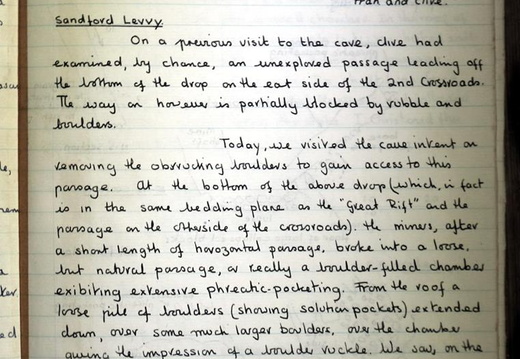 Fran and Clive.
Sandford Levvy
On a previous visit to the cave, clive had
examined, by chance, an unexplored passage leading off
the bottom of the drop on the east side of the 2nd Crossroads.
The way on however is partially blocked by rubble and
boulders.
Today, we visited the cave intent on
removing the obstructing boulders to gain access to this
passage. At the bottom of the above drop (which, in fact
is in the same bedding plane as the "Great Rift" and the
passage on the otherside of the crossroads). the miners, after
a short length of horozontal passage, broke into a loose,
but natural passage, or really a boulder-filled chamber
exibiting extensive phreatic-pocketing. From the roof a
loose pile of boulders (showing solution pockets) extended
down, over some much larger boulders, over the chamber
giving the impression of a boulder ruckle. We saw, on the